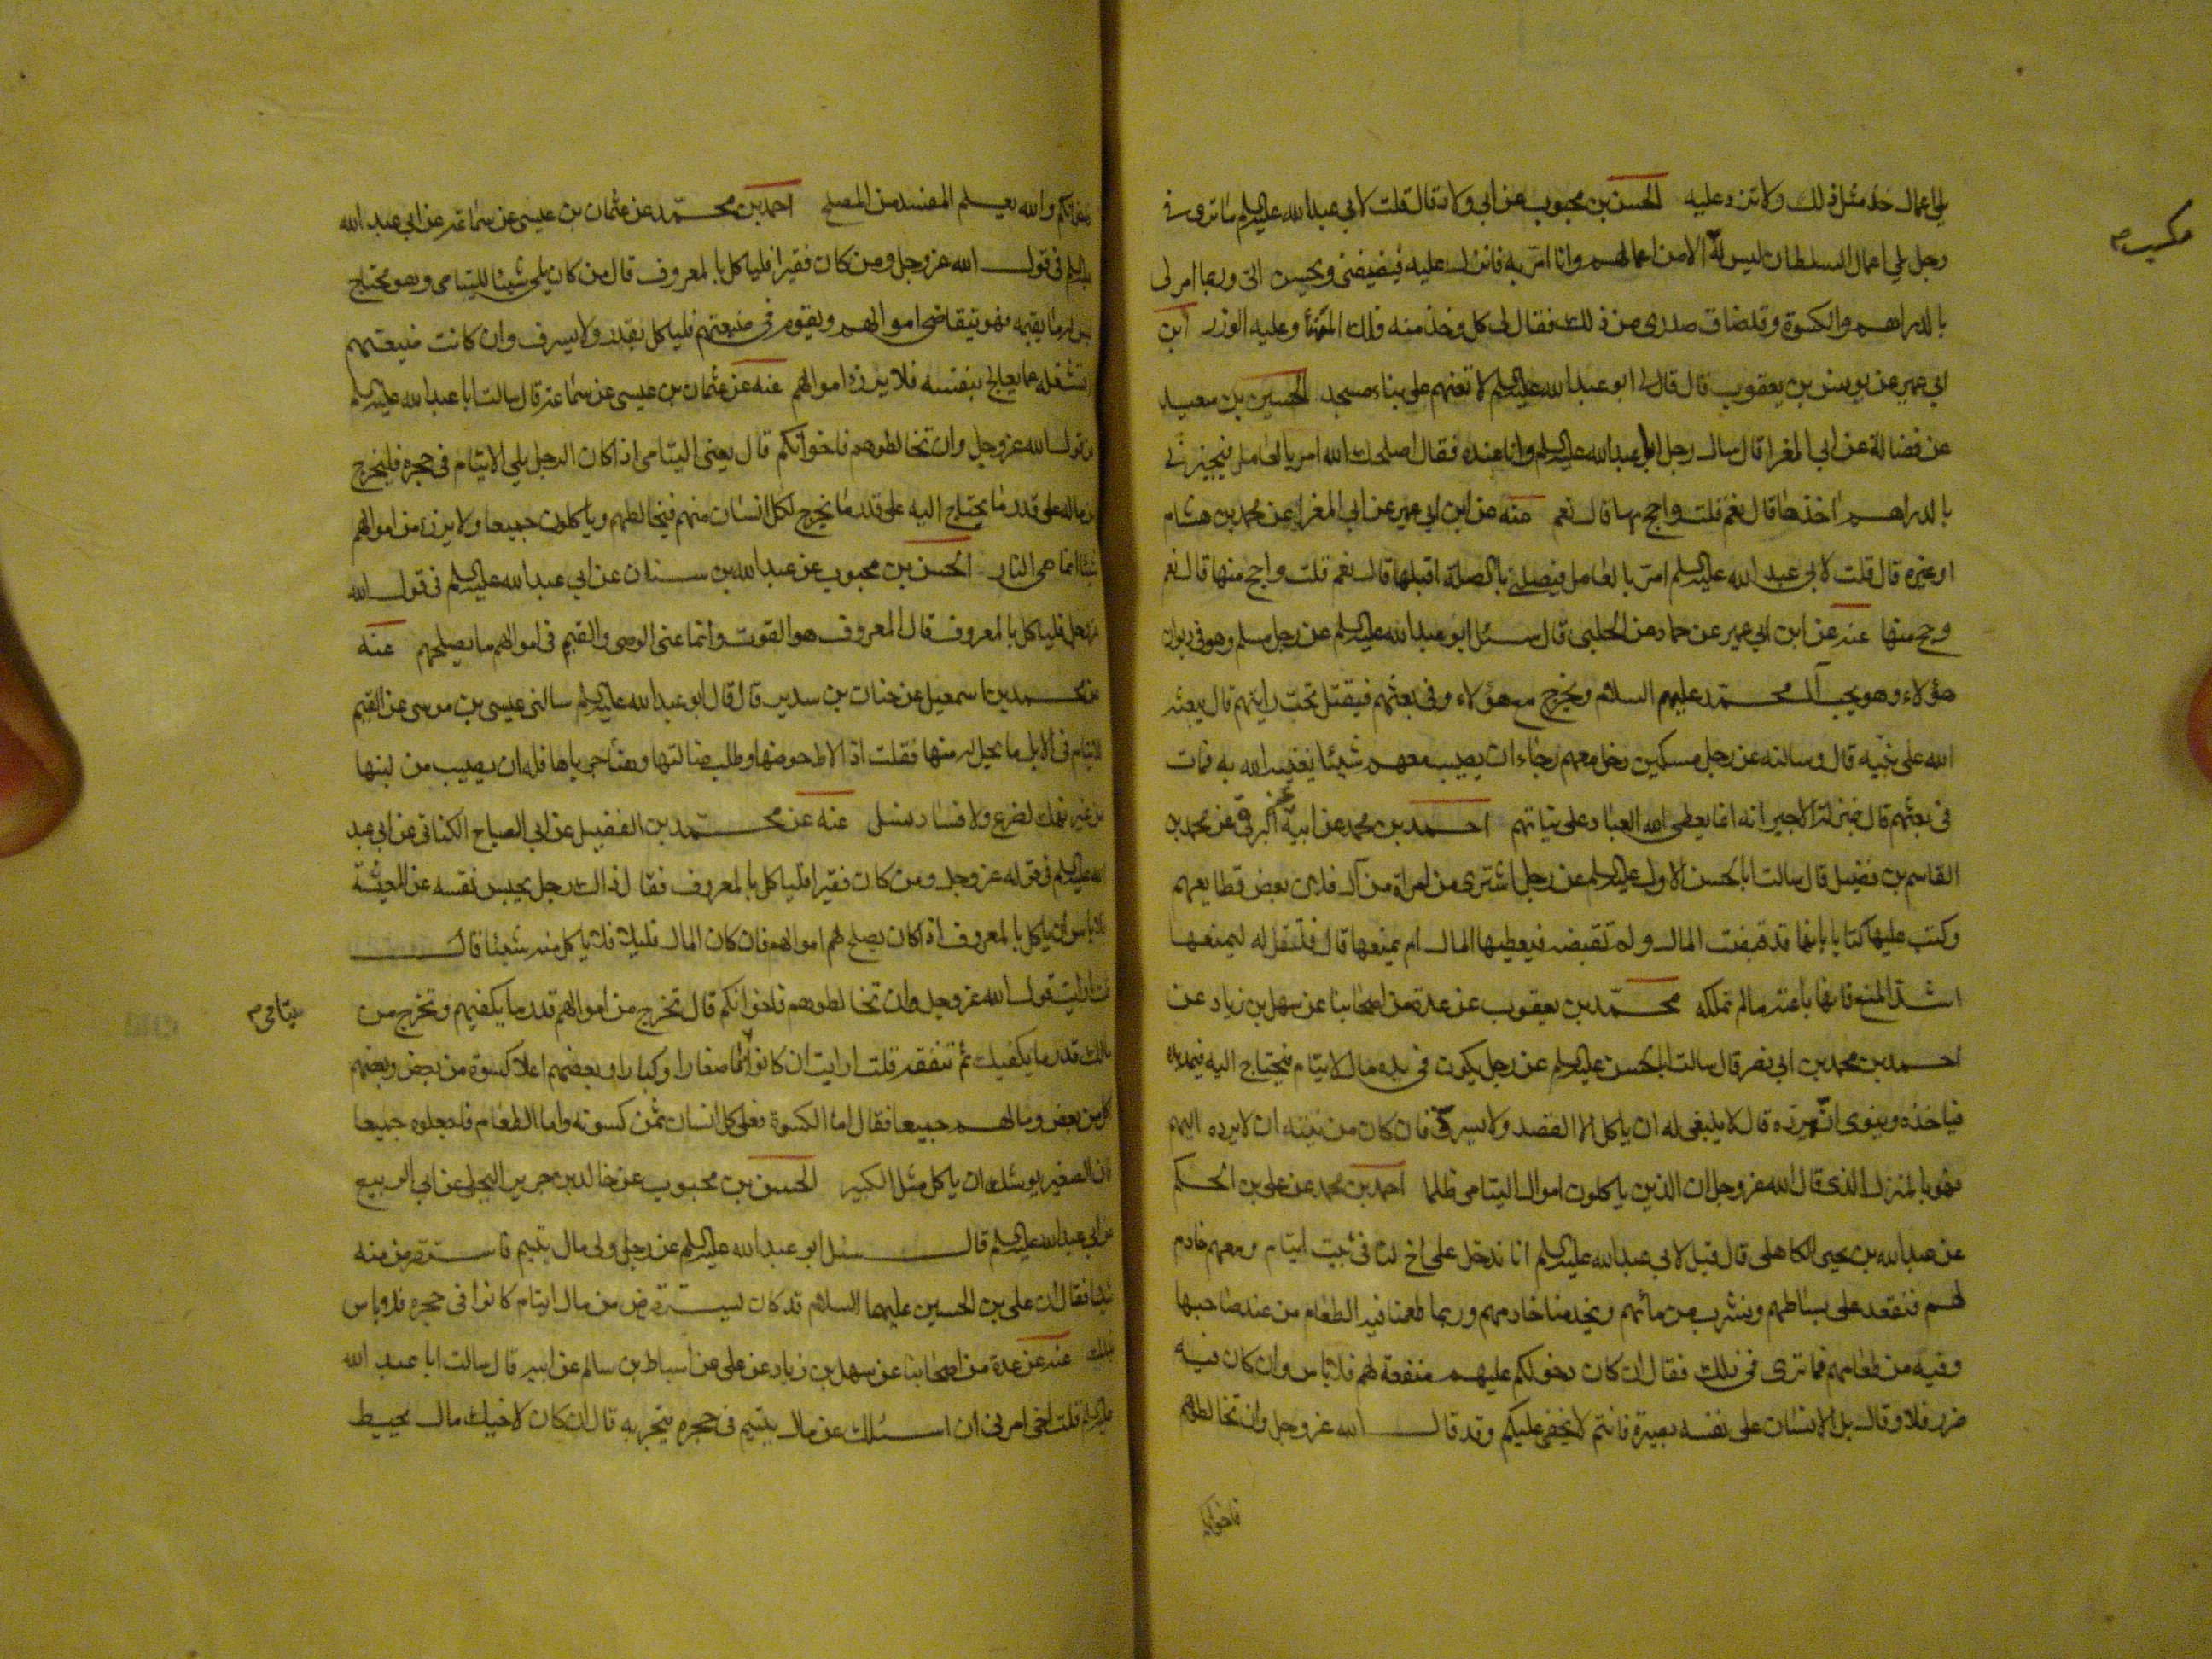 مكسب م
لي اعمال خذ مثل ذلك ولا تزد عليه الحسن بن محبوب عن ابي ولاد قال قلت لابي عبد الله عليه السلم ما ترى في
رجل يلي اعمال السلطان ليس له الا من اعمالهم وانا امر به فانزل عليه فيضيفني ويحسن الي وربما امر لي
بالدراهم والكسوة وقد ضاق صدري من ذلك فقال لي كل وخذ منه فلك المهنأ وعليه الوزر ابن
ابي عمير عن يونس بن يعقوب قال قال لي ابو عبد الله عليه السلم لا تعنهم على بناء مسجد الحسين بن سعيد
عن فضالة عن ابي المغرا قال سال رجل ابا عبد الله عليه السلم وانا عنده فقال اصلحك الله امر بالعامل فيجيزني
بالدراهم اخذها قال نعم قلت واحج بها قال نعم عنه عن ابن ابي عمير عن ابي المغرا عن محمد بن هشام
او غيره قال قلت لابي عبد الله عليه السلم امر بالعامل فيصلني بالصلة اقبلها قال نعم قلت واحج منها قال نعم
وحج منها عنه عن ابن ابي عمير عن حماد عن الحلبي قال سئل ابو عبد الله عليه السلم عن رجل مسلم وهو في ديوان
هؤلاء وهو يحب آل محمد عليهم السلام ويخرج مع هؤلاء وفي بعثهم فيقتل تحت رايتهم قال يبعثه
الله على نيته قال وسالته عن رجل مسكين دخل معهم رجاء ان يصيب معهم شيئا يغنيه الله به فمات
في بعثهم قال هو بمنزلة الاجير انه انما يعطي الله العباد على نياتهم احمد بن محمد عن ابيه البرقي عن محمد بن
القاسم بن فضيل قال سالت ابا الحسن الاول عليه السلم عن رجل اشترى من امراة من آل فلان بعض قطايعهم
وكتب عليها كتابا بانها قد قبضت المال ولم تقبضه فيعطيها المال ام يمنعها قال فلتقل له ليمنعها
اشد المنع فانها باعته ما لم تملكه محمد بن يعقوب عن عدة من اصحابنا عن سهل بن زياد عن
احمد بن محمد بن ابي نصر قال سالت ابا الحسن عليه السلم عن رجل يكون في يده مال لايتام فيحتاج اليه فيمد يده
فياخذه وينوي ان يرده قال لا ينبغي له ان ياكل الا القصد ولا يسرف فان كان من نيته ان لا يرده اليهم
فهو بالمنزل الذي قال الله عز وجل ان الذين ياكلون اموال اليتامى ظلما احمد بن محمد عن علي بن الحكم
عن عبد الله بن يحيى الكاهلي قال قيل لابي عبد الله عليه السلم انا ندخل على اخ لنا في بيت ايتام ومعهم خادم
لهم فنقعد على بساطهم ونشرب من مائهم ويخدمنا خادمهم وربما طعمنا فيه الطعام من عند صاحبها
وفيه من طعامهم فما ترى في ذلك فقال ان كان دخولكم عليهم منفعة لهم فلا باس وان كان فيه
ضرر فلا وقال بل الانسان على نفسه بصيرة فانتم لا يخفى عليكم وقد قال الله عز وجل وان تخالطوهم
فاخوانكم
فاخوانكم والله يعلم المفسد من المصلح احمد بن محمد عن عثمان بن عيسى عن سماعة عن ابي عبد الله
عليه السلم في قول الله عز وجل ومن كان فقيرا فلياكل بالمعروف قال من كان يلي شيئا لليتامى وهو محتاج
ليس له ما يقيمه فهو يتقاضى اموالهم ويقوم في ضيعتهم فلياكل بقدر ولا يسرف وان كانت ضيعتهم
لا تشغله عما يعالج بنفسه فلا يرزأ اموالهم عنه عن عثمان بن عيسى عن سماعة قال سالت ابا عبد الله عليه السلم
عن قول الله عز وجل وان تخالطوهم فاخوانكم قال يعني اليتامى اذا كان الرجل يلي الايتام في حجره فليخرج
من ماله على قدر ما يحتاج اليه على قدر ما يخرج لكل انسان منهم فيخالطهم وياكلون جميعا ولا يرزأ من اموالهم
شيئا انما هي النار الحسن بن محبوب عن عبد الله بن سنان عن ابي عبد الله عليه السلم في قول الله
عز وجل فلياكل بالمعروف قال المعروف هو القوت وانما عنى الوصي والقيم في اموالهم ما يصلحهم عنه
عن محمد بن اسمعيل عن حنان بن سدير قال قال ابو عبد الله عليه السلم سالني عيسى بن موسى عن القيم
للايتام في الابل ما يحل له منها فقلت اذا لاط حوضها وطلب ضالتها وهنأ جرباها فله ان يصيب من لبنها
من غير نهك لضرع ولا فساد نسل عنه عن محمد بن الفضيل عن ابي الصباح الكناني عن ابي عبد
الله عليه السلم في قوله عز وجل ومن كان فقيرا فلياكل بالمعروف فقال ذلك رجل يحبس نفسه عن المعيشة
فلا باس ان ياكل بالمعروف اذا كان يصلح لهم اموالهم فان كان المال قليلا فلا ياكل منه شيئا قال
قلت ارايت قول الله عز وجل وان تخالطوهم فاخوانكم قال تخرج من اموالهم قدر ما يكفيهم وتخرج من
يتامى م
مالك قدر ما يكفيك ثم تنفقه قلت ارايت ان كانوا يتامى صغارا وكبارا وبعضهم اعلا كسوة من بعض وبعضهم
اكل من بعض ومالهم جميعا فقال اما الكسوة فعلى كل انسان ثمن كسوته واما الطعام فاجعلوه جميعا
فان الصغير يوشك ان ياكل مثل الكبير الحسن بن محبوب عن خالد بن جرير البجلي عن ابي الربيع
عن ابي عبد الله عليه السلم قال سئل ابو عبد الله عليه السلم عن رجل ولي مال يتيم فاستقرض منه
شيئا فقال ان علي بن الحسين عليهما السلام قد كان يستقرض من مال ايتام كانوا في حجره فلا باس
بذلك عنه عن عدة من اصحابنا عن سهل بن زياد عن علي عن اسباط بن سالم عن ابيه قال سالت ابا عبد الله
عليه السلم قلت اخي امرني ان اسئلك عن مال يتيم في حجره يتجر به قال ان كان لاخيك مال يحيط